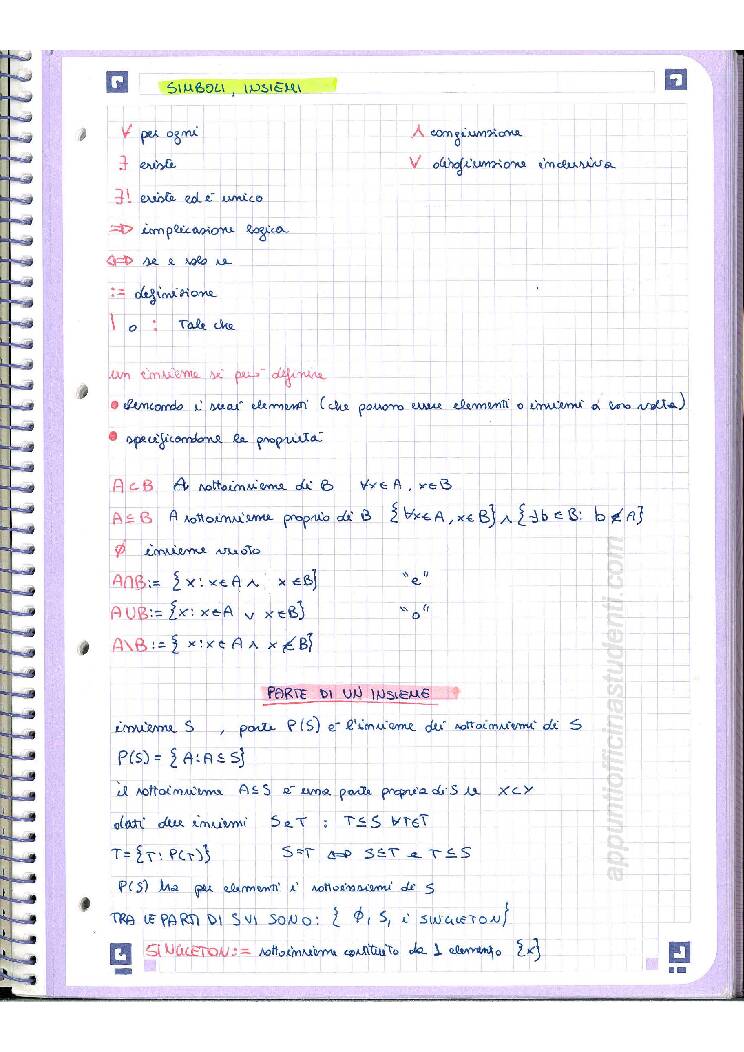 SIMBOLI, INSIEMI
∀ per ogni
∧ congiunzione
∃ esiste
∨ disgiunzione inclusiva
∃! esiste ed è unico
⇒ implicazione logica
⇔ se e solo se
:= definizione
| o : Tale che
un insieme si può definire
• elencando i suoi elementi (che possono essere elementi o insiemi a loro volta)
• specificandone le proprietà
A⊂B A sottoinsieme di B ∀x∈A, x∈B
A⊆B A sottoinsieme proprio di B {∀x∈A, x∈B} ∧ {∃b∈B: b∉A}
∅ insieme vuoto
A∩B:= {x: x∈A ∧ x∈B} "e"
A∪B:= {x: x∈A ∨ x∈B} "o"
A\B:= {x: x∈A ∧ x∉B}
PARTE DI UN INSIEME
insieme S, parte P(S) è l'insieme dei sottoinsiemi di S
P(S) = {A: A⊆S}
il sottoinsieme A⊆S è una parte propria di S se X⊂Y
dati due insiemi S e T : T⊆S ∀T∈T
T={T: P(T)} S=T ⇔ S⊆T e T⊆S
P(S) ha per elementi i sottoinsiemi di S
TRA LE PARTI DI S VI SONO: {∅, S, i SINGLETON}
SINGLETON:= sottoinsieme costituito da 1 elemento {x}
appuntiofficinastudenti.com